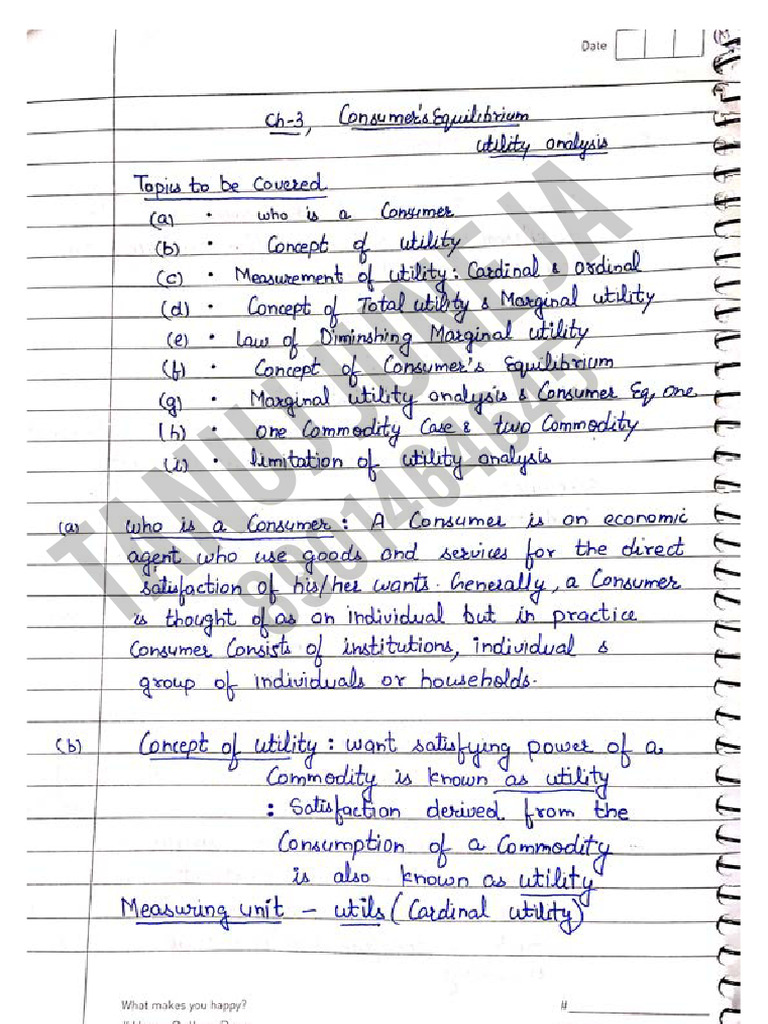 Date
Ch-3, Consumer's Equilibrium
utility analysis
Topics to be Covered
(a) • who is a Consumer
(b) • Concept of utility
(c) • Measurement of utility: Cardinal & ordinal
(d) • Concept of Total utility & Marginal utility
(e) • Law of Diminshing Marginal utility
(f) • Concept of Consumer's Equilibrium
(g) • Marginal utility analysis & Consumer Eq, one
(h) • one Commodity Case & two Commodity
(i) • limitation of utility analysis
(a) who is a Consumer: A Consumer is an economic
agent who use goods and services for the direct
satisfaction of his/her wants. Generally, a Consumer
is thought of as an individual but in practice
Consumer Consists of institutions, individual &
group of individuals or households.
(b) Concept of utility: want satisfying power of a
Commodity is known as utility
: Satisfaction derived from the
Consumption of a Commodity
is also known as utility
Measuring unit - utils (Cardinal utility)
What makes you happy? #
TANUJ JUNEJA